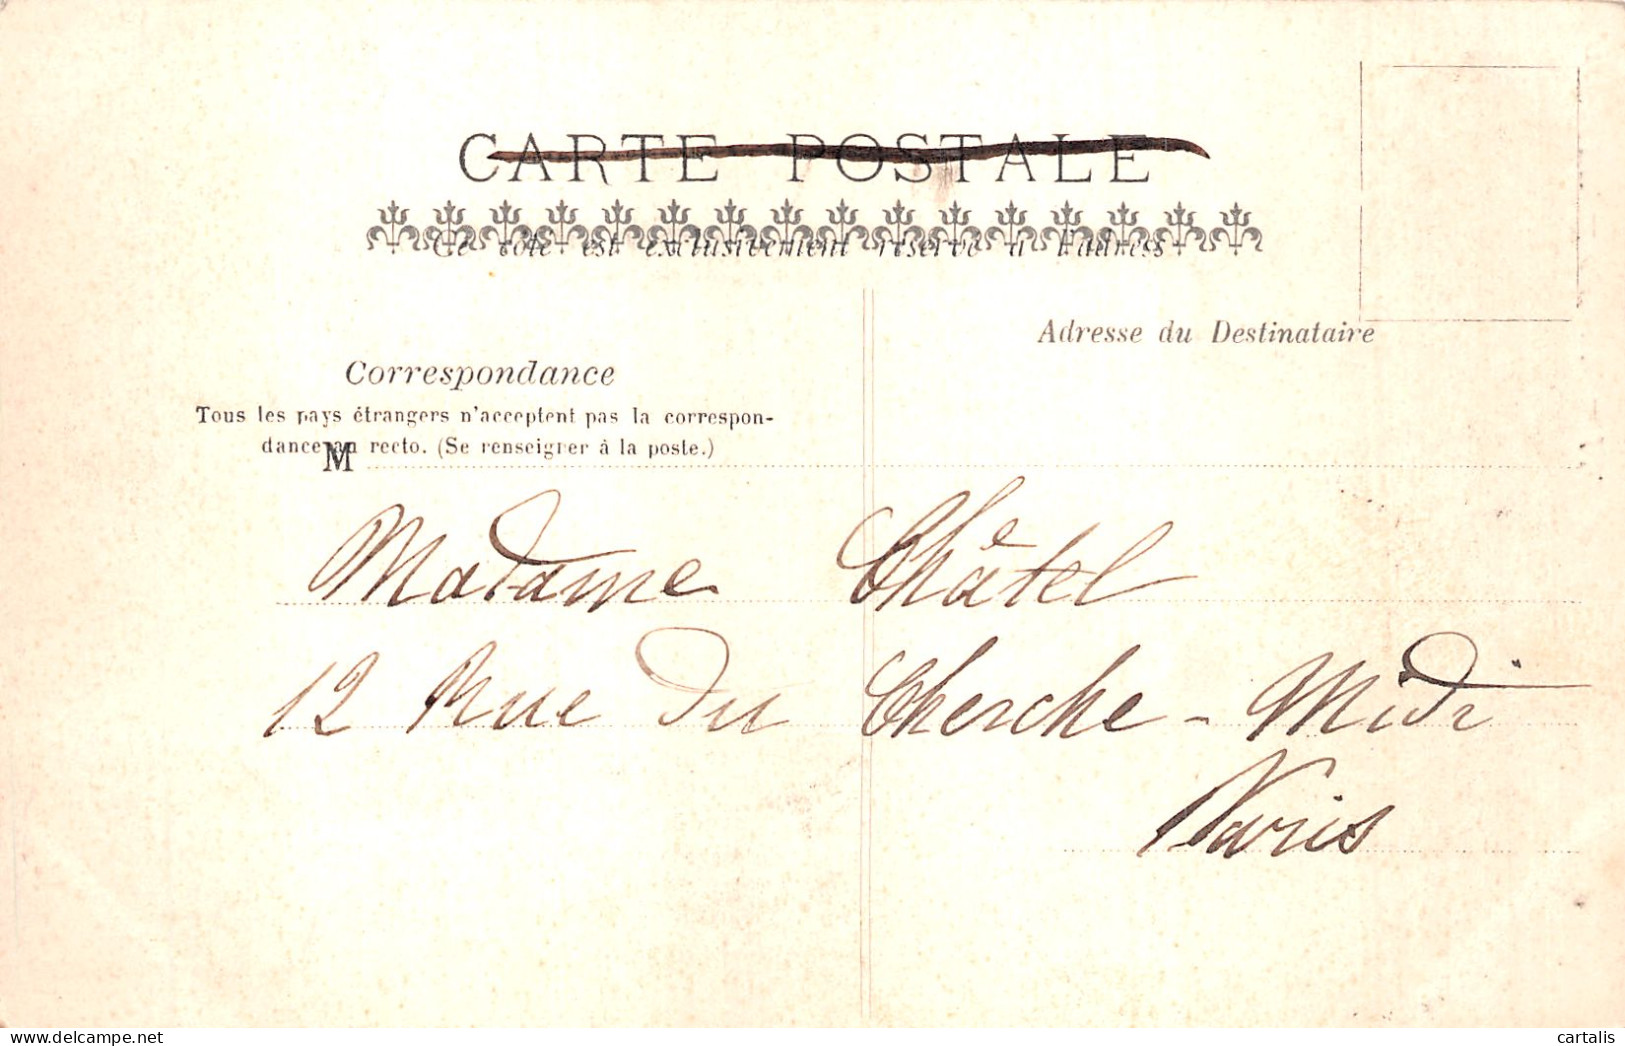 CARTE POSTALE
Ce côté est exclusivement réservé à l'adress
Adresse du Destinataire
Correspondance
Tous les pays étrangers n'acceptent pas la correspon-
dance au recto. (Se renseigner à la poste.)
M
Madame Châtel
12 Rue du Cherche-Midi
Paris
cartalis